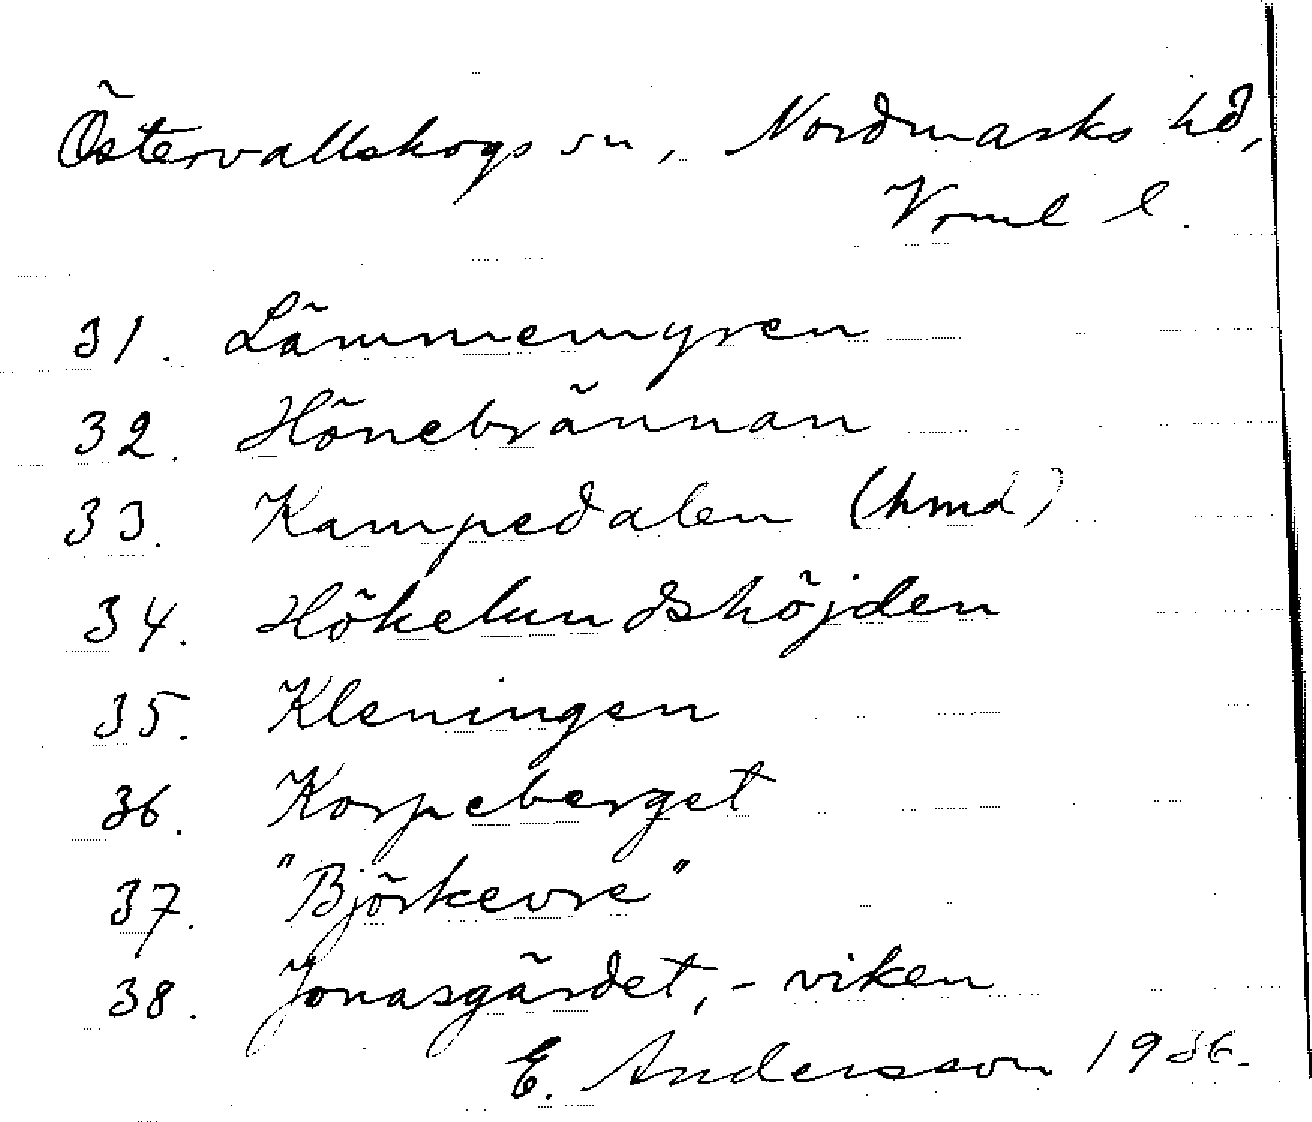 Östervallskogs sn, Nordmarks hd,
Vrml l.
31. Lämmemyren
32. Hönebrännan
33. Kampedalen (hmd)
34. Hökelundshöjden
35. Kleningen
36. Korpeberget
37. "Björkevre"
38. Jonasgärdet, - viken
E. Andersson 1936.